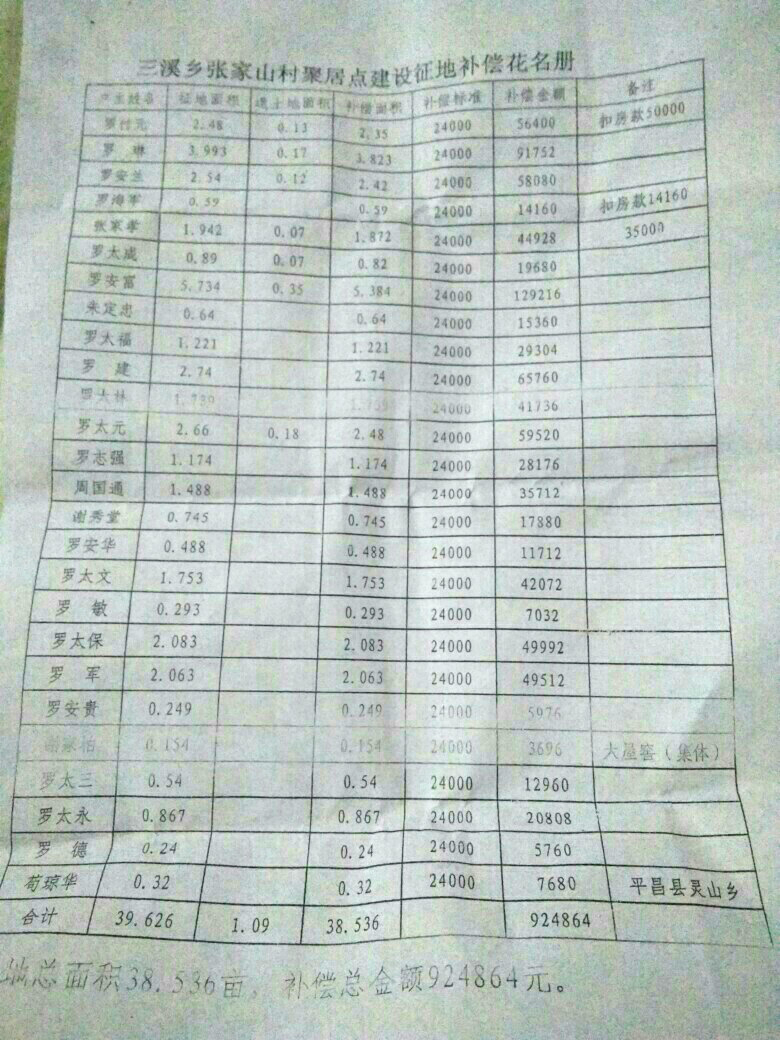 三溪乡张家山村聚居点建设征地补偿花名册
户主姓名 征地面积 退土地面积 补偿面积 补偿标准 补偿金额 备注
罗付元 2.48 0.13 2.35 24000 56400 扣房款50000
罗 琳 3.993 0.17 3.823 24000 91752
罗安兰 2.54 0.12 2.42 24000 58080
罗海军 0.59 0.59 24000 14160 扣房款14160
张家孝 1.942 0.07 1.872 24000 44928 35000
罗太成 0.89 0.07 0.82 24000 19680
罗安富 5.734 0.35 5.384 24000 129216
朱定忠 0.64 0.64 24000 15360
罗太福 1.221 1.221 24000 29304
罗 建 2.74 2.74 24000 65760
罗太林 1.739 1.739 24000 41736
罗太元 2.66 0.18 2.48 24000 59520
罗志强 1.174 1.174 24000 28176
周国通 1.488 1.488 24000 35712
谢秀堂 0.745 0.745 24000 17880
罗安华 0.488 0.488 24000 11712
罗太文 1.753 1.753 24000 42072
罗 敏 0.293 0.293 24000 7032
罗太保 2.083 2.083 24000 49992
罗 军 2.063 2.063 24000 49512
罗安贵 0.249 0.249 24000 5976
0.154 0.154 24000 3696 大屋窖（集体）
罗太三 0.54 0.54 24000 12960
罗太永 0.867 0.867 24000 20808
罗 德 0.24 0.24 24000 5760
苟琼华 0.32 0.32 24000 7680 平昌县灵山乡
合计 39.626 1.09 38.536 924864
地总面积38.536亩，补偿总金额924864元。